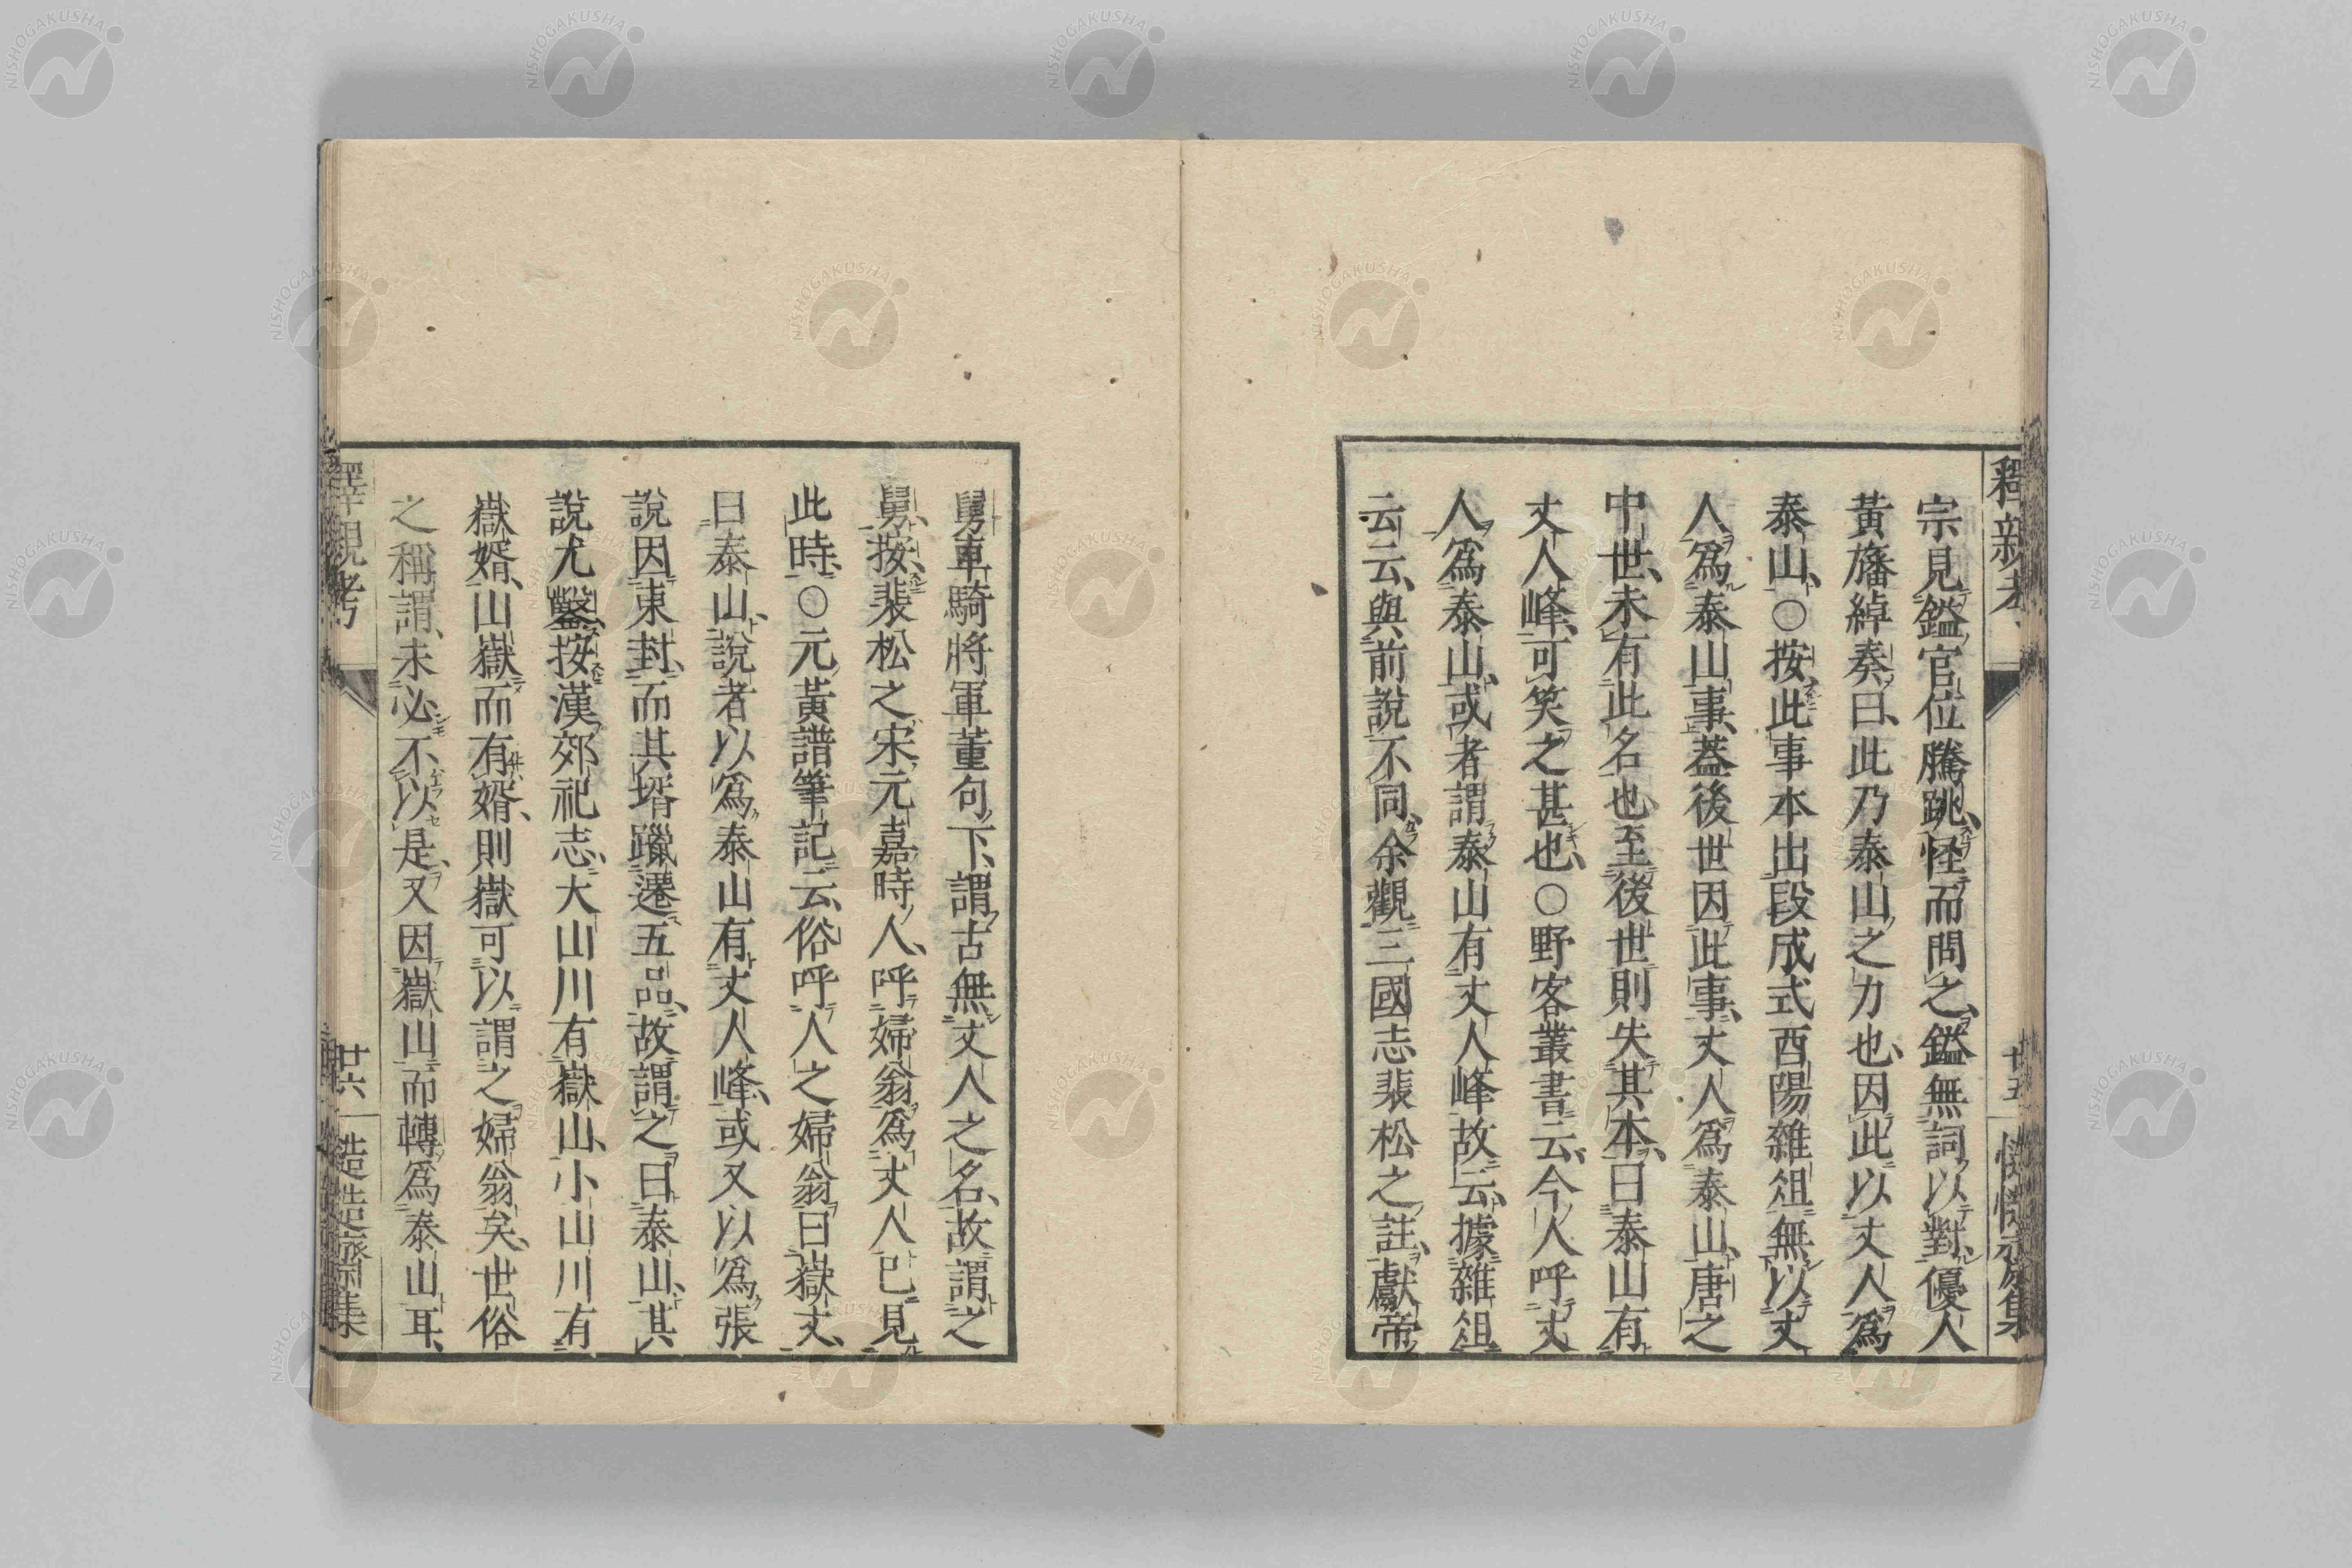 宗見鎰官位騰跳、怪而問之、鎰無詞以對、優人
黃旛綽奏曰、此乃泰山之力也、因此以丈人爲
泰山、○按、此事本出段成式酉陽雜俎無以丈
人爲泰山事、葢後世因此事、丈人爲泰山、唐之
中世、未有此名也至後世則失其本、曰泰山有
丈人峰、可笑之甚也、○野客叢書云、今人呼丈
人爲泰山、或者謂泰山有丈人峰故云、據雜俎
云云、與前說不同、余觀三國志裴松之註、獻帝
舅車騎將軍董句下、謂古無丈人之名、故謂之
舅、按、裴松之宋元嘉時人、呼婦翁爲丈人已見
此時、○元黃譜筆記云、俗呼人之婦翁曰嶽丈、
曰泰山、說者以爲泰山有丈人峰、或又以爲張
說因東封、而其壻躐遷五品、故謂之曰泰山、其
說尤鑿、按漢郊祀志、大山川有嶽山、小山川有
嶽婿、山嶽而有婿、則嶽可以謂之婦翁矣、世俗
之稱謂、未必不以是、又因嶽山而轉爲泰山耳、
釋親考
廿六